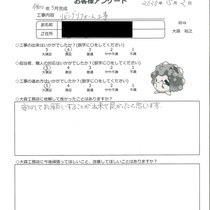 お客様アンケート
工事内容
大森 裕之
○工事の出来はいかがでしたか？（数字に○をしてください）
5 4 3 2 1
大満足 満足 普通 やや不満 不満
○担当者、職人の対応はいかがでしたか？（数字に○をしてください）
5 4 3 2 1
大満足 満足 普通 やや不満 不満
○工事の進め方はいかがでしたか？（数字に○をしてください）
5 4 3 2 1
大満足 満足 普通 やや不満 不満
○大森工務店に依頼して良かったことはありますか？
安心してお願いすることが出来て良かったと思います。
○大森工務店に今後頑張ってほしいこと、改善してほしいことはありますか？